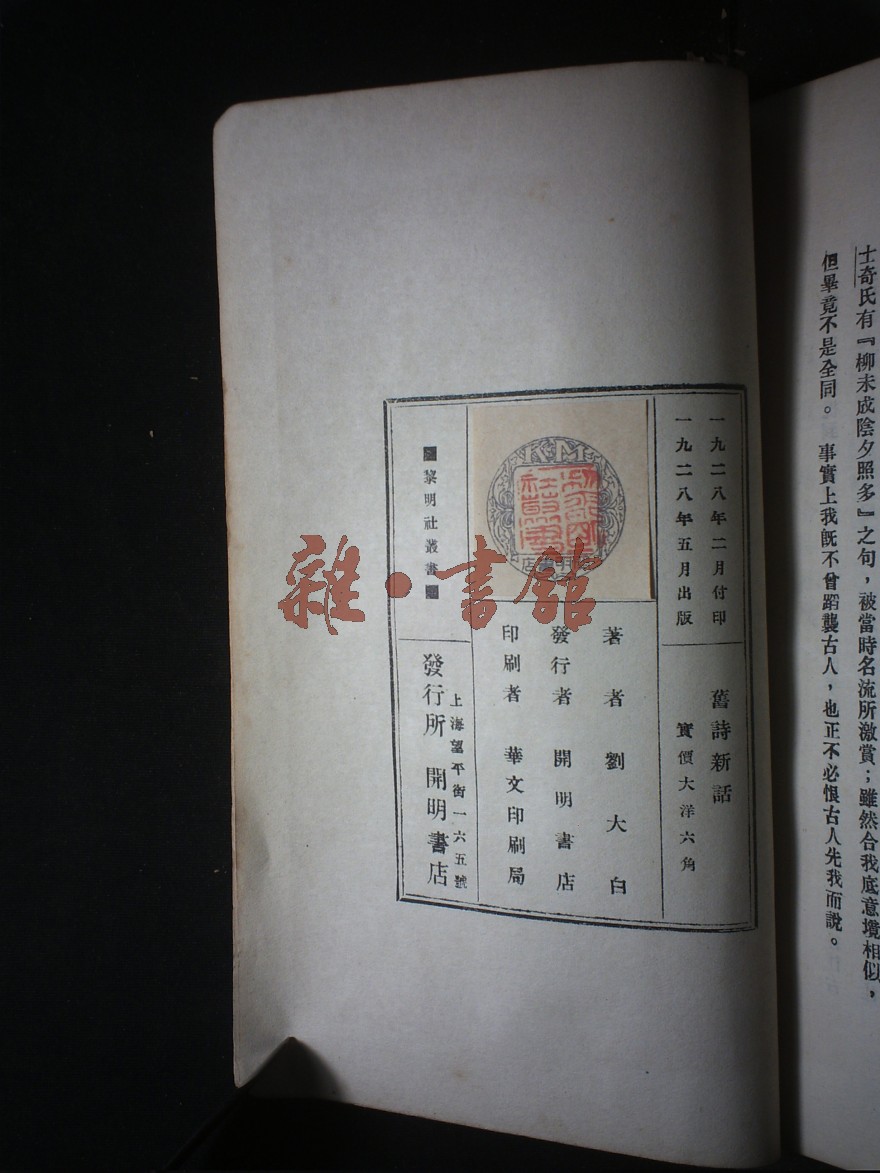 士奇氏有『柳未成陰夕照多』之句，被當時名流所激賞；雖然合我底意境相似，
但畢竟不是全同。事實上我旣不曾蹈襲古人，也正不必恨古人先我而說。
一九二八年二月付印
一九二八年五月出版
舊詩新話
實價大洋六角
K.M.
開明書店
著者 劉大白
發行者 開明書店
印刷者 華文印刷局
黎明社叢書
上海望平街一六五號
發行所 開明書店
雜·書館